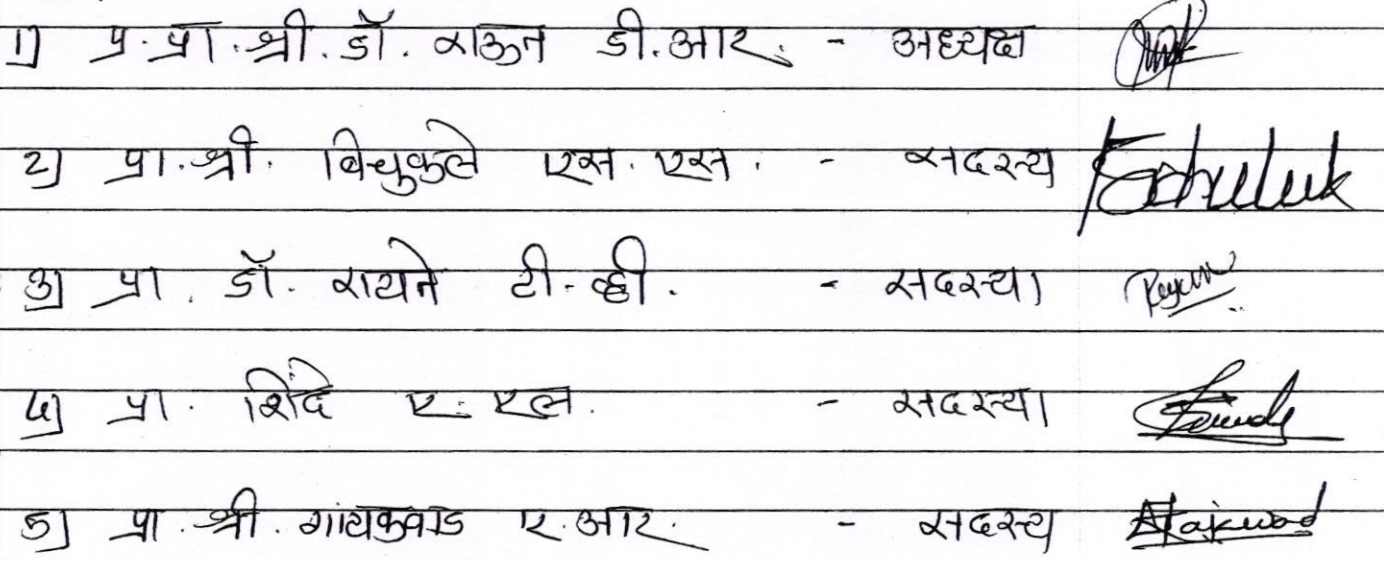 १) प्र. प्रा. श्री. डॉ. राऊत डी. आर. - अध्यक्ष
२) प्रा. श्री. बिचुकुले एस. एस. - सदस्य
३) प्रा. डॉ. रायते टी. व्ही. - सदस्या
४) प्रा. शिंदे ए. एल. - सदस्या
५) प्रा. श्री. गायकवाड ए. आर. - सदस्य